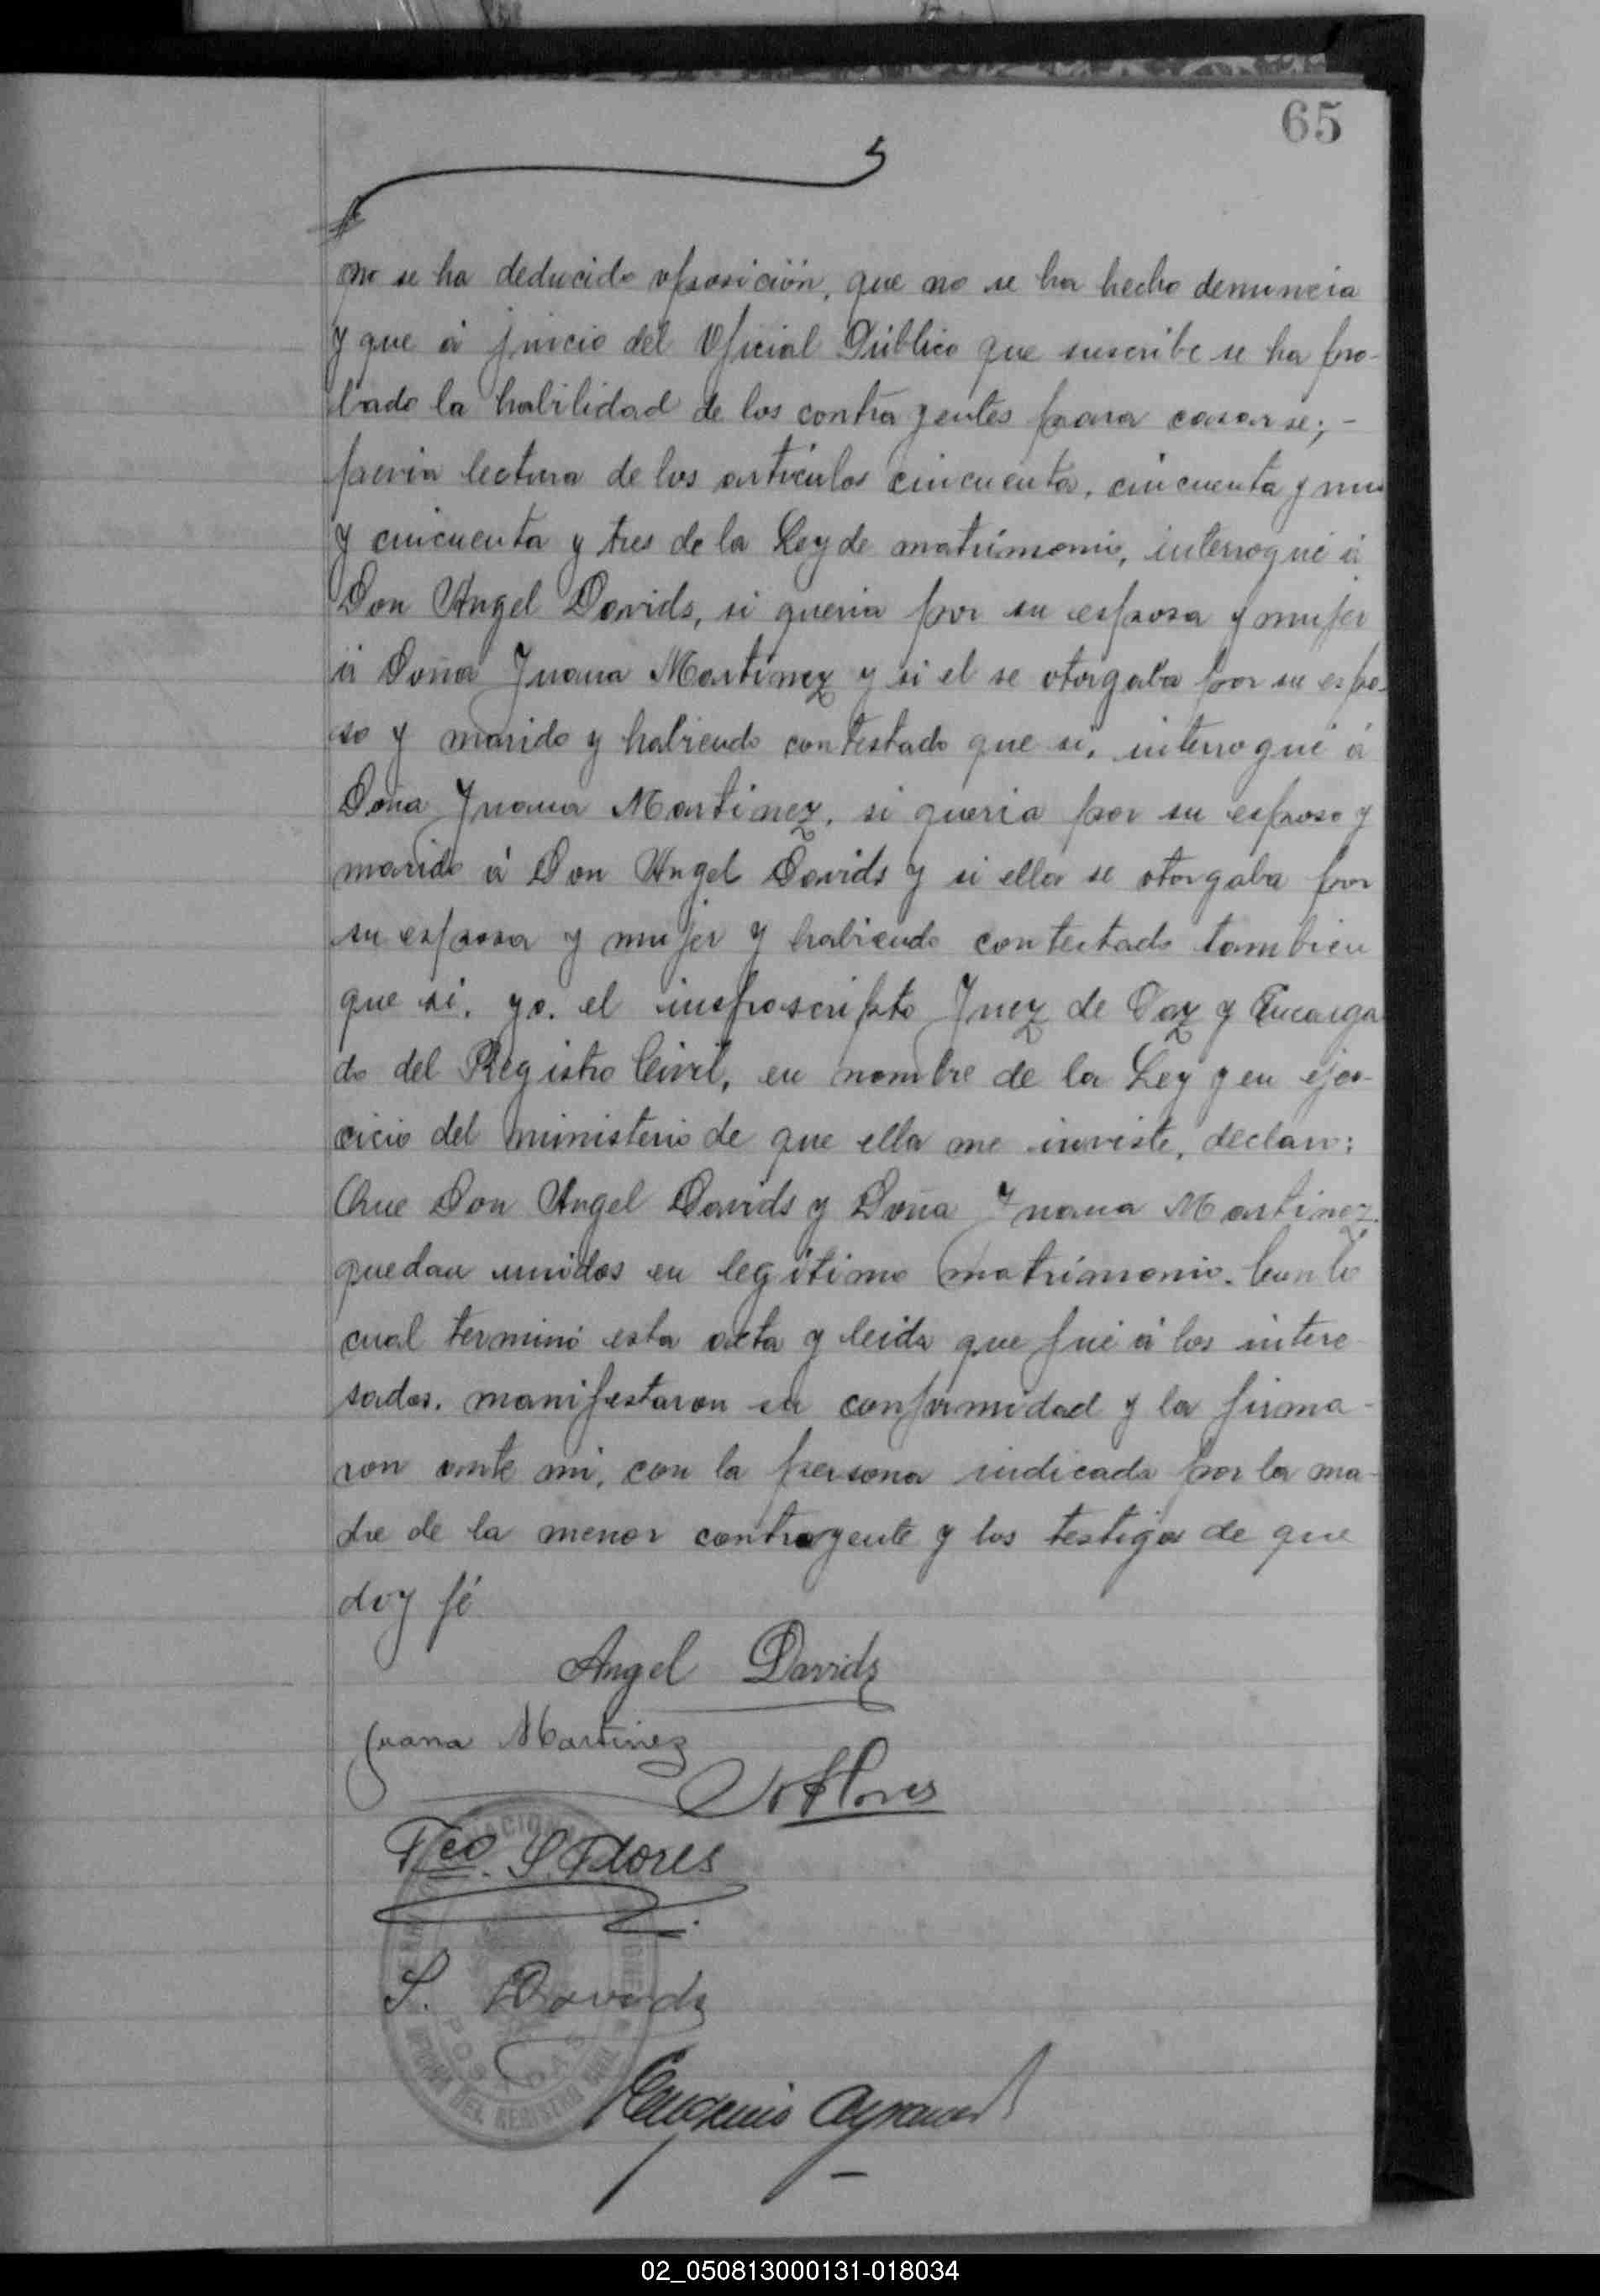 65
no se ha deducido oposición, que no se ha hecho denuncia
y que á juicio del Oficial Público que suscribe se ha pro-
bado la habilidad de los contrayentes para casarse; -
previa lectura de los artículos cincuenta, cincuenta y uno
y cincuenta y tres de la Ley de matrimonio, interrogué á
Don Angel Davids, si queria por su esposa y mujer
á Doña Juana Martinez y si el se otorgaba por su espo-
so y marido y habiendo contestado que si, interrogué á
Doña Juana Martinez, si queria por su esposo y
marido á Don Angel Davids y si ella se otorgaba por
su esposa y mujer y habiendo contestado tambien
que si, yo, el infrascripto Juez de Paz y Encarga
do del Registro Civil, en nombre de la Ley y en ejer-
cicio del ministerio de que ella me inviste, declaro:
Que Don Angel Davids y Doña Juana Martinez
quedan unidos en legítimo matrimonio. Con lo
cual terminó esta acta y leida que fué á los intere
sados, manifestaron su conformidad y la firma-
ron ante mi, con la persona indicada por la ma-
dre de la menor contrayente y los testigos de que
doy fé
Angel Davids
Juana Martinez
Flores
Fco. S. Flores
S. Davids
Eugenio
POSADAS
OFICINA DEL REGISTRO CIVIL
02_050813000131-018034